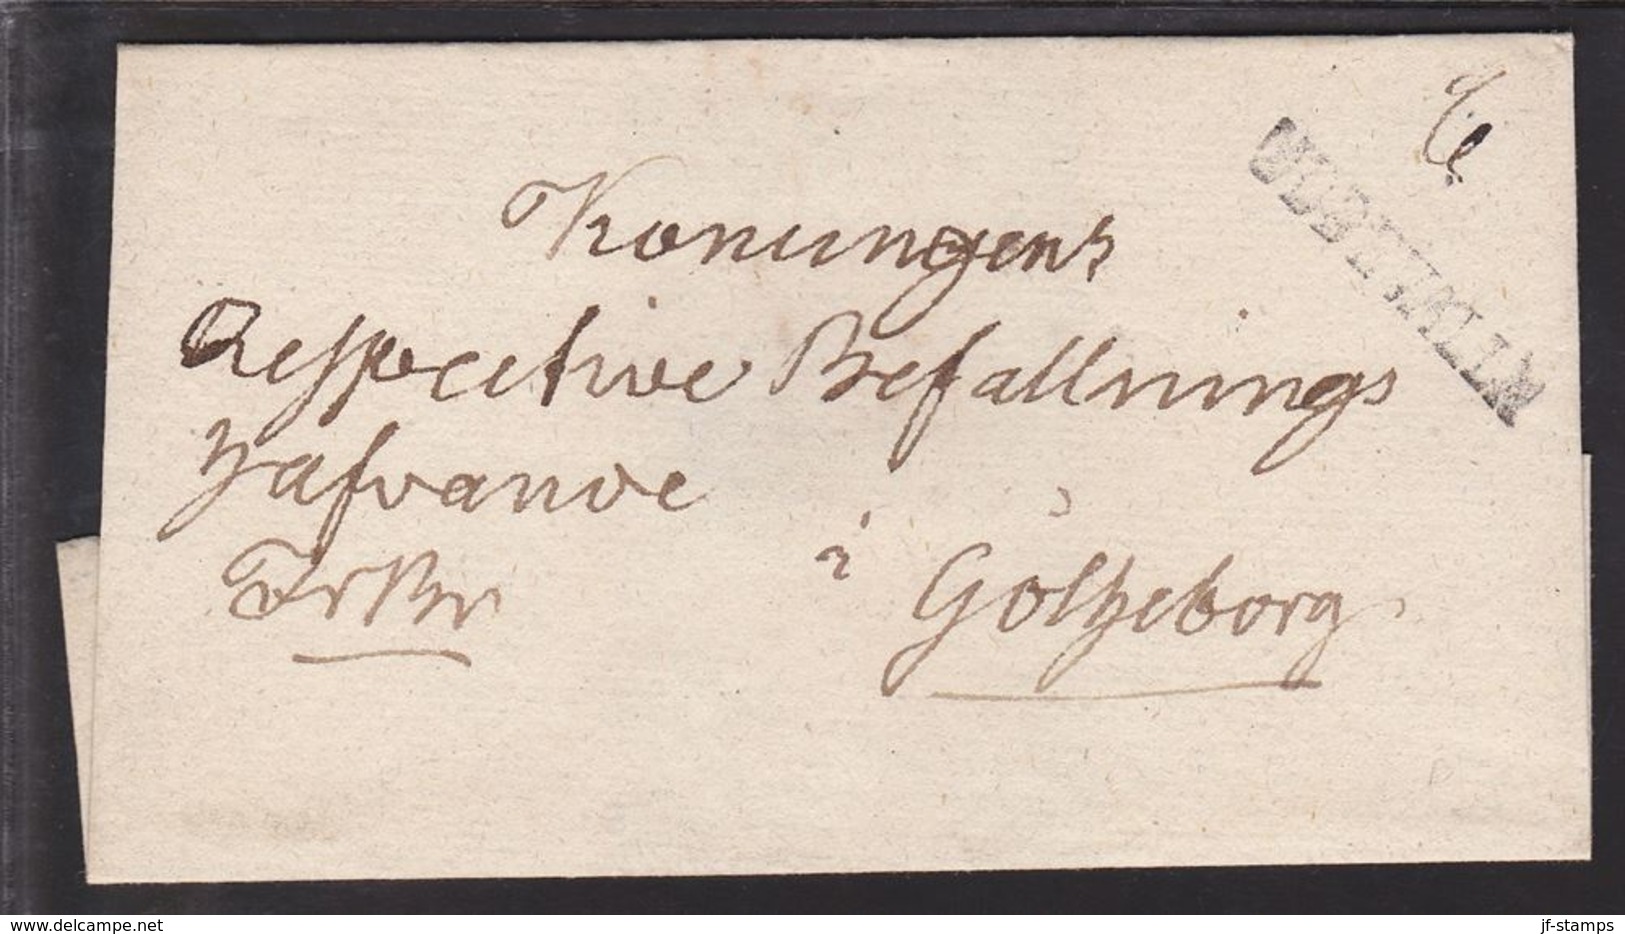 Konungens
Respective Befallnings
hafvande
Fr Br i Götheborg
UDDEWALLA
delcampe.net
jf-stamps